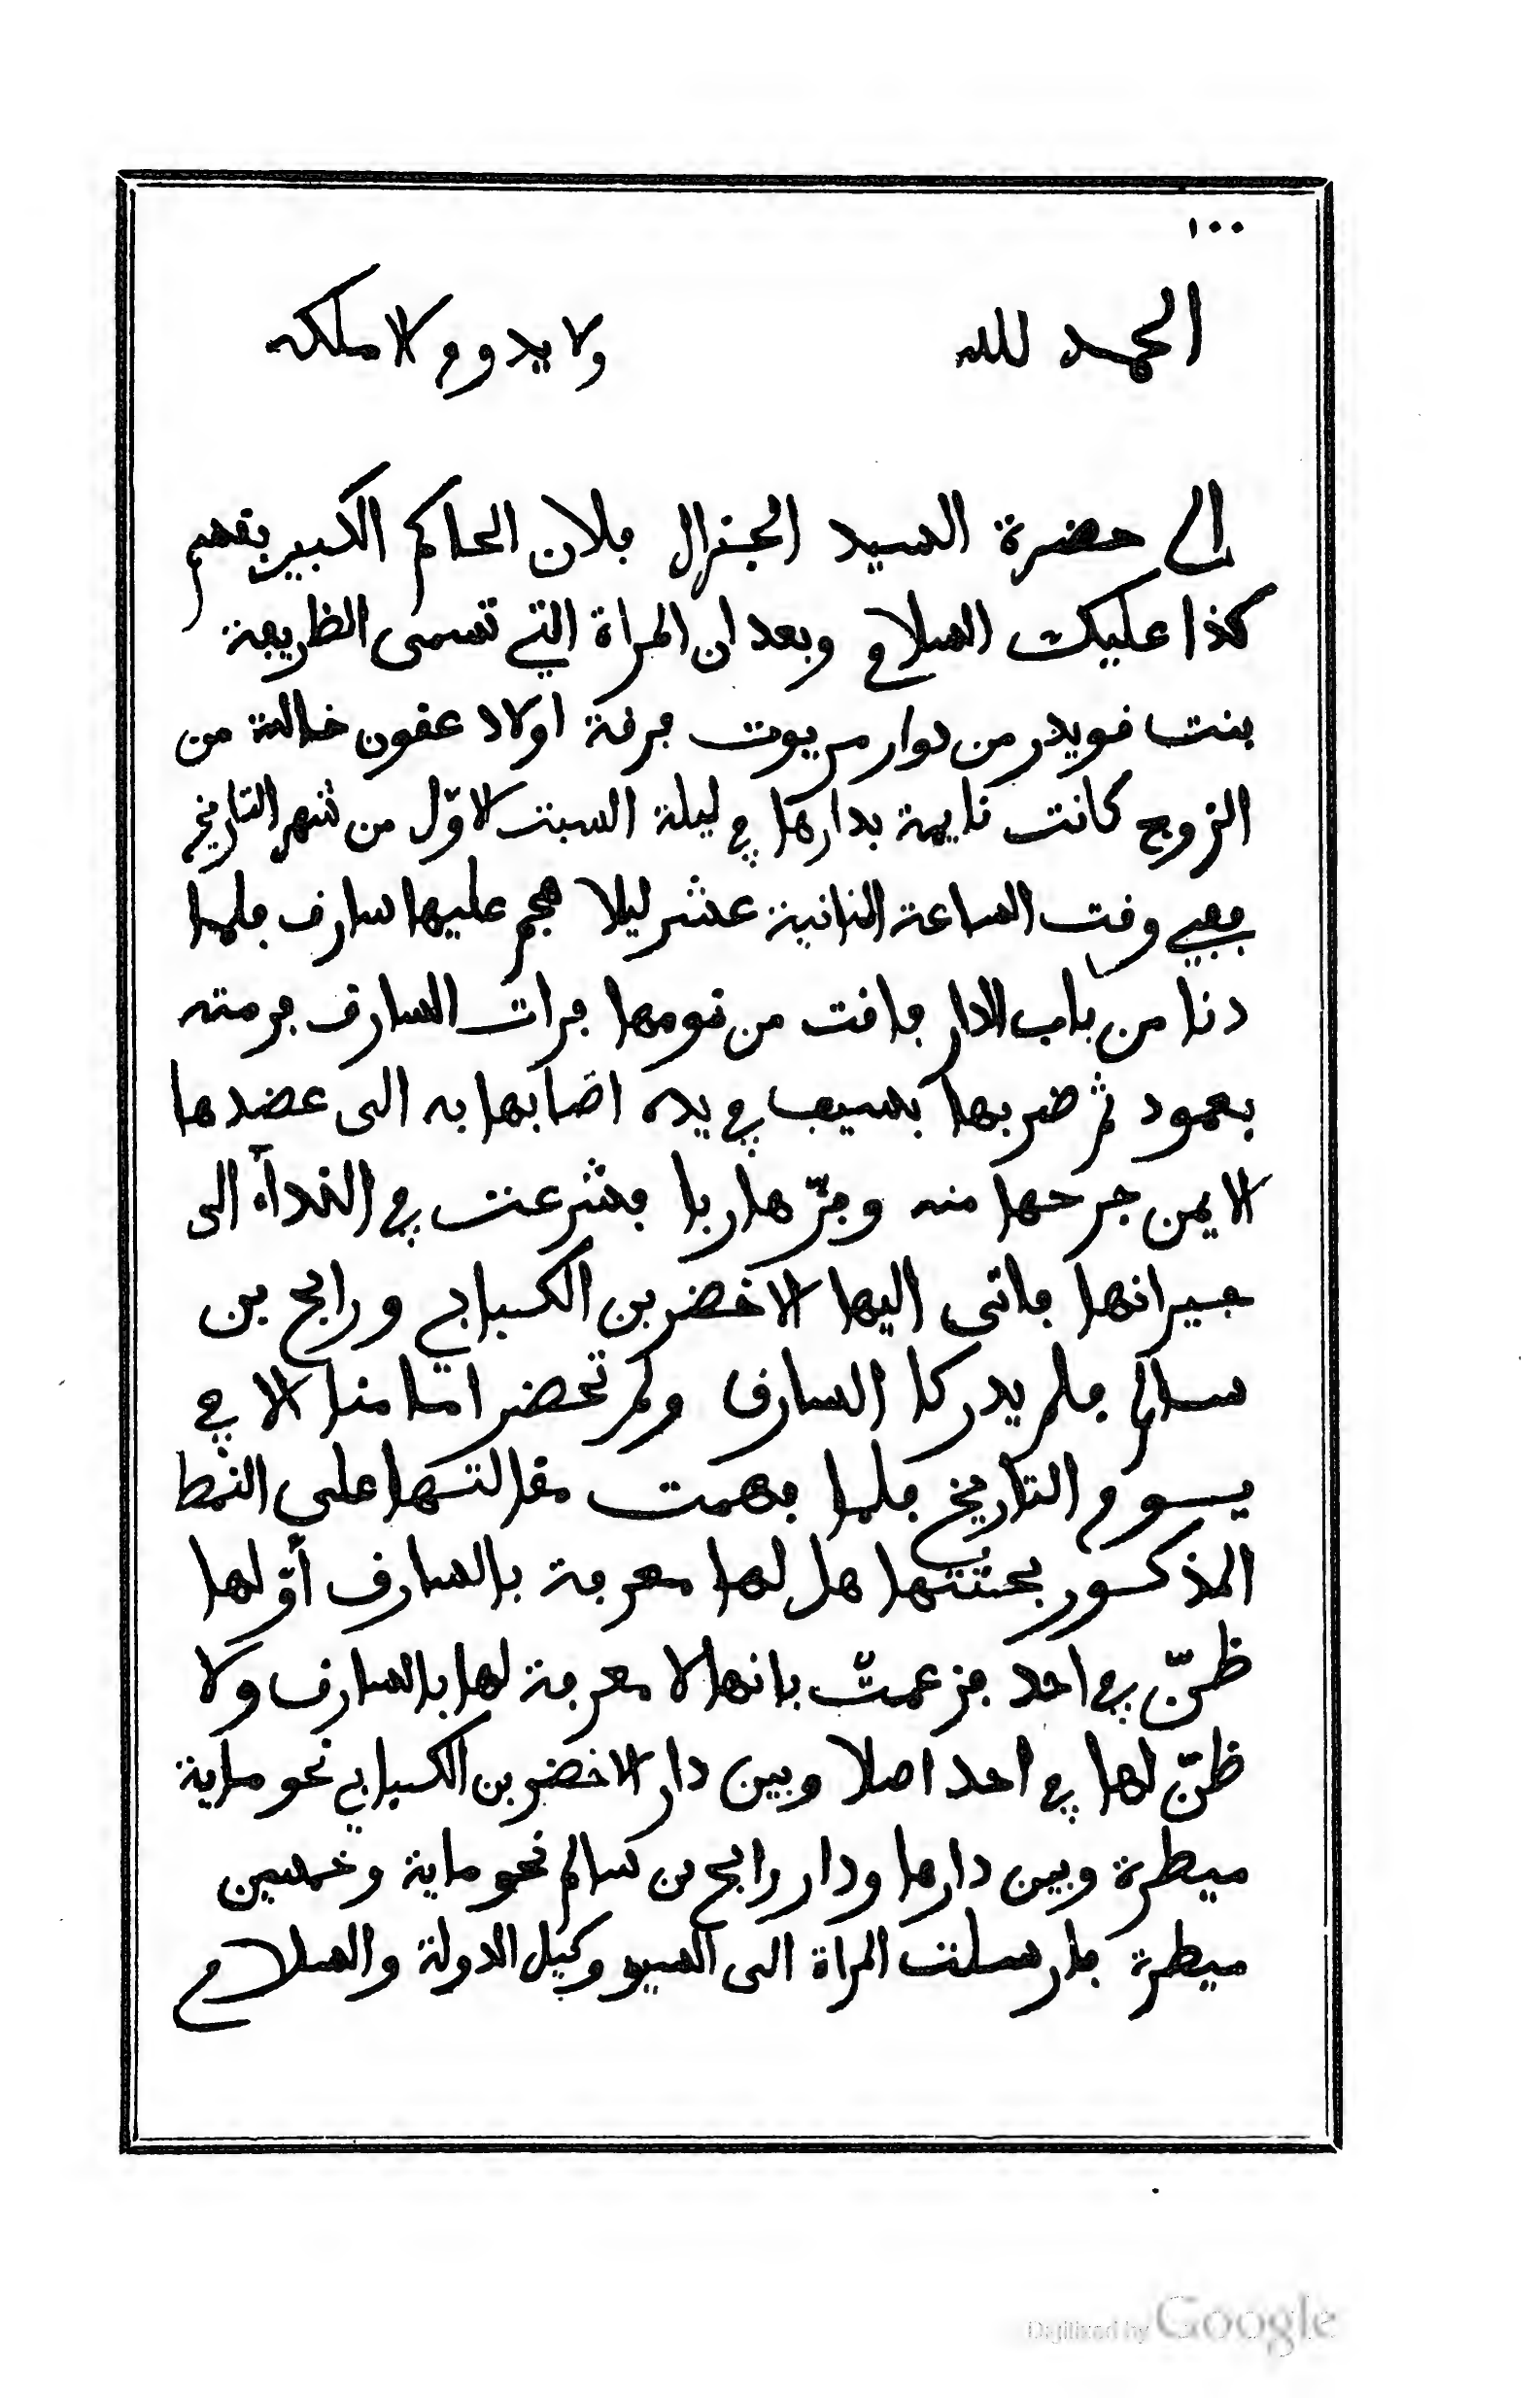 ١٠٠
الحمد لله ولا يدوم الا ملكه
الى حضرة السيد الجنرال فلان الحاكم الكبير بقهم
كذا عليك السلام وبعد ان المراة التي تسمى الظريفة
بنت قويدر من دوار مريوت فرقة اولاد عقون خالية من
الزوج كانت نايمة بدارها في ليلة السبت الاوّل من شهر التاريخ
ففي وقت الساعة الثانية عشر ليلا هجم عليها سارق فلما
دنا من باب الدار فاقت من نومها فرات السارق فرمته
بعمود ثم ضربها بسيف في يده اصابها به الى عضدها
الايمن جرحها منه وفرّ هاربا فشرعت في الندآء الى
جيرانها فاتى اليها الاخضر بن الكسبابي ورابح بن
سالم فلم يدركا السارق ولم تحضر امامنا الا في
يوم التاريخ فلما فهمت مقالتها على النمط
المذكور بحثتها هل لها معرفة بالسارق أو لها
ظنّ في احد فزعمت بانها لا معرفة لها بالسارق ولا
ظنّ لها في احد اصلا وبين دار الاخضر بن الكسبابي نحو ماية
ميطرة وبين دارها ودار رابح بن سالم نحو ماية وخمسين
ميطرة فارسلت المراة الى السيو وكيل الدولة والسلام
Digitized by Google